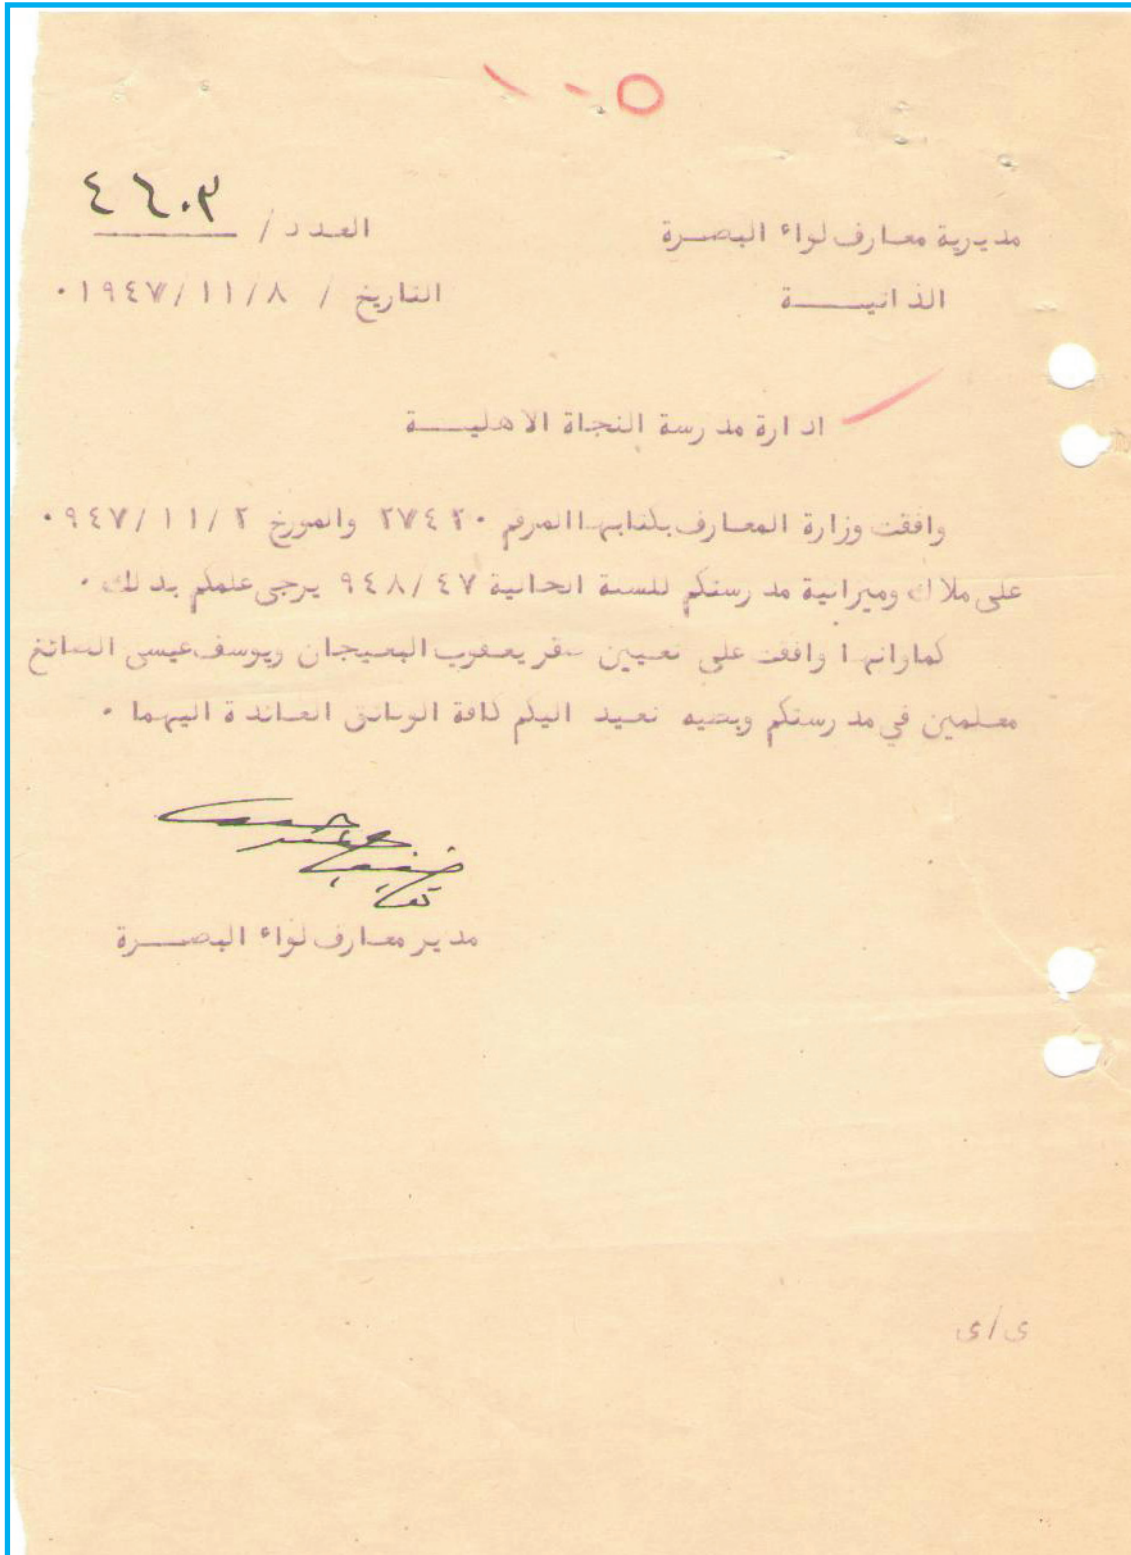 ٥ - ١
مديرية معارف لواء البصـرة
العدد / ٤٦٠٣
الذاتيـــة
التاريخ / ١٩٤٧/١١/٨٠
ادارة مدرسة النجاة الاهليـــة
وافقت وزارة المعارف بكتابها المرقم ٢٧٤٢٠ والمورخ ٩٤٧/١١/٢٠
على ملاك وميزانية مدرستكم للسنة الحالية ٩٤٨/٤٧ يرجى علمكم بذلك ٠
كماوانها وافقت على تعيين صقر يعقوب البعيجان ويوسف عيسى الصائغ
معلمين في مدرستكم وبطيه نعيد اليكم كافة الوثائق العائدة اليهما ٠
مدير معارف لواء البصـــرة
ى/ى